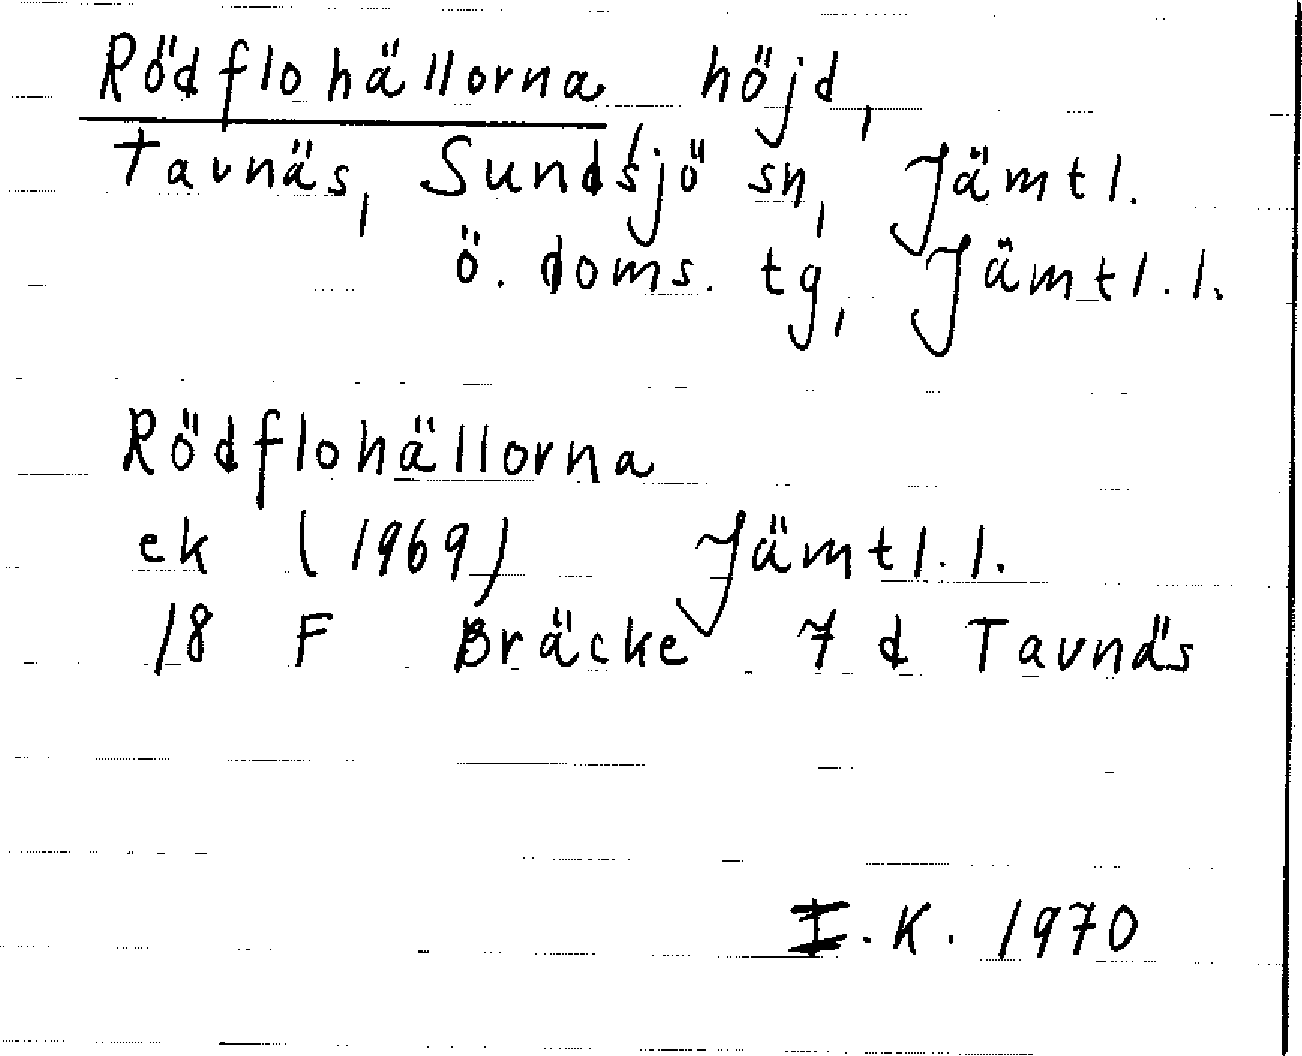 Rödflohällorna höjd,
Tavnäs, Sundsjö sn, Jämtl.
ö. doms. tg, Jämtl. l.
Rödflohällorna
ek (1969) Jämtl. l.
18 F Bräcke 7 d Tavnäs
I. K. 1970